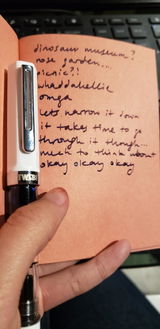 dinosaur museum?
rose garden...
picnic?!
whaddahellie
omga
lets narrow it down
it takes time to go
through it though...
much to think about
okay okay okay
TWSBI ECO